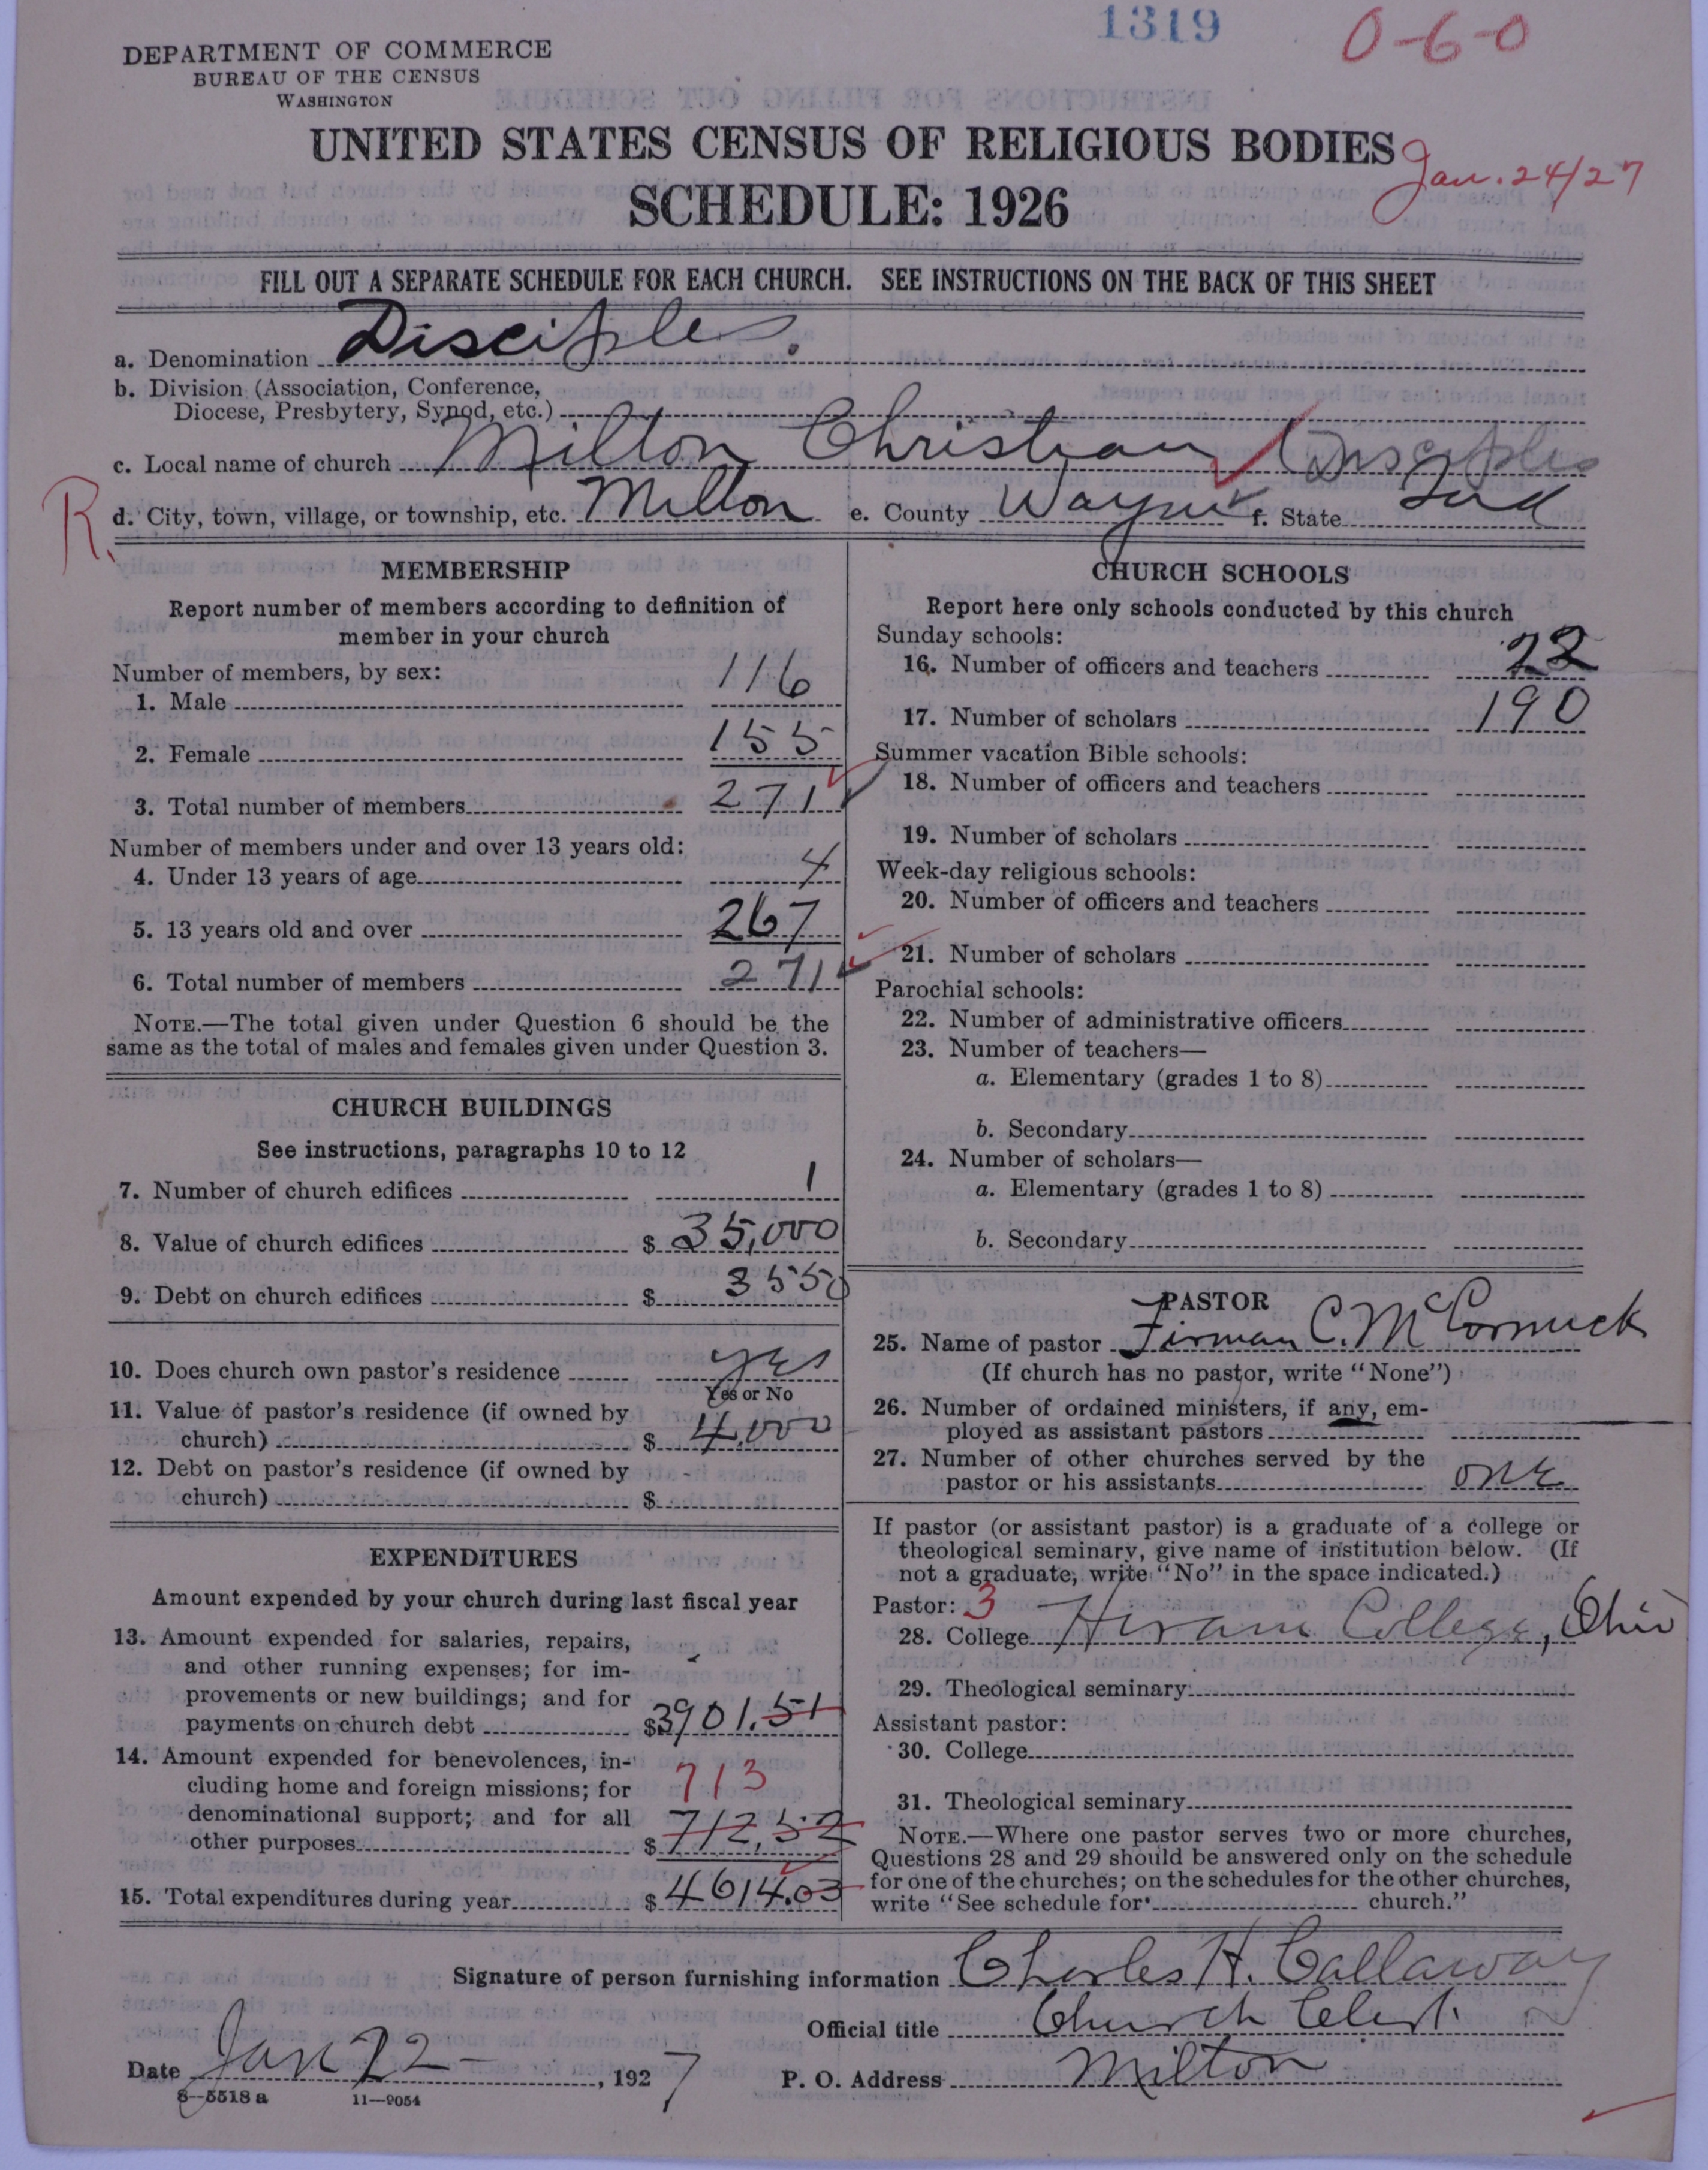 1319
0-6-0
DEPARTMENT OF COMMERCE
BUREAU OF THE CENSUS
WASHINGTON
UNITED STATES CENSUS OF RELIGIOUS BODIES
Jan. 24/27
SCHEDULE: 1926
FILL OUT A SEPARATE SCHEDULE FOR EACH CHURCH. SEE INSTRUCTIONS ON THE BACK OF THIS SHEET
a. Denomination Disciples.
b. Division (Association, Conference,
Diocese, Presbytery, Synod, etc.)
c. Local name of church Milton Christian (Disciples
R.
d. City, town, village, or township, etc. Milton e. County Wayne f. State Ind
MEMBERSHIP
Report number of members according to definition of
member in your church
Number of members, by sex:
1. Male 116
2. Female 155
3. Total number of members 271
Number of members under and over 13 years old:
4. Under 13 years of age 4
5. 13 years old and over 267
6. Total number of members 271
NOTE.—The total given under Question 6 should be the
same as the total of males and females given under Question 3.
CHURCH BUILDINGS
See instructions, paragraphs 10 to 12
7. Number of church edifices 1
8. Value of church edifices $ 35,000
9. Debt on church edifices $ 3550
10. Does church own pastor's residence yes
Yes or No
11. Value of pastor's residence (if owned by
church) $ 4,000
12. Debt on pastor's residence (if owned by
church) $
EXPENDITURES
Amount expended by your church during last fiscal year
13. Amount expended for salaries, repairs,
and other running expenses; for im-
provements or new buildings; and for
payments on church debt $3901.51
14. Amount expended for benevolences, in-
cluding home and foreign missions; for 713
denominational support; and for all
other purposes $ 712.52
15. Total expenditures during year $ 4614.03
CHURCH SCHOOLS
Report here only schools conducted by this church
Sunday schools:
16. Number of officers and teachers 22
17. Number of scholars 190
Summer vacation Bible schools:
18. Number of officers and teachers
19. Number of scholars
Week-day religious schools:
20. Number of officers and teachers
21. Number of scholars
Parochial schools:
22. Number of administrative officers
23. Number of teachers—
a. Elementary (grades 1 to 8)
b. Secondary
24. Number of scholars—
a. Elementary (grades 1 to 8)
b. Secondary
PASTOR
25. Name of pastor Firman C. McCormick
(If church has no pastor, write "None")
26. Number of ordained ministers, if any, em-
ployed as assistant pastors
27. Number of other churches served by the
pastor or his assistants one
If pastor (or assistant pastor) is a graduate of a college or
theological seminary, give name of institution below. (If
not a graduate, write "No" in the space indicated.)
Pastor: 3
28. College Hiram College, Ohio
29. Theological seminary
Assistant pastor:
30. College
31. Theological seminary
NOTE.—Where one pastor serves two or more churches,
Questions 28 and 29 should be answered only on the schedule
for one of the churches; on the schedules for the other churches,
write "See schedule for church."
Signature of person furnishing information Charles H. Callaway
Official title Church Clerk
Date Jan 22 - , 1927 P. O. Address Milton
8—5518 a 11—9054